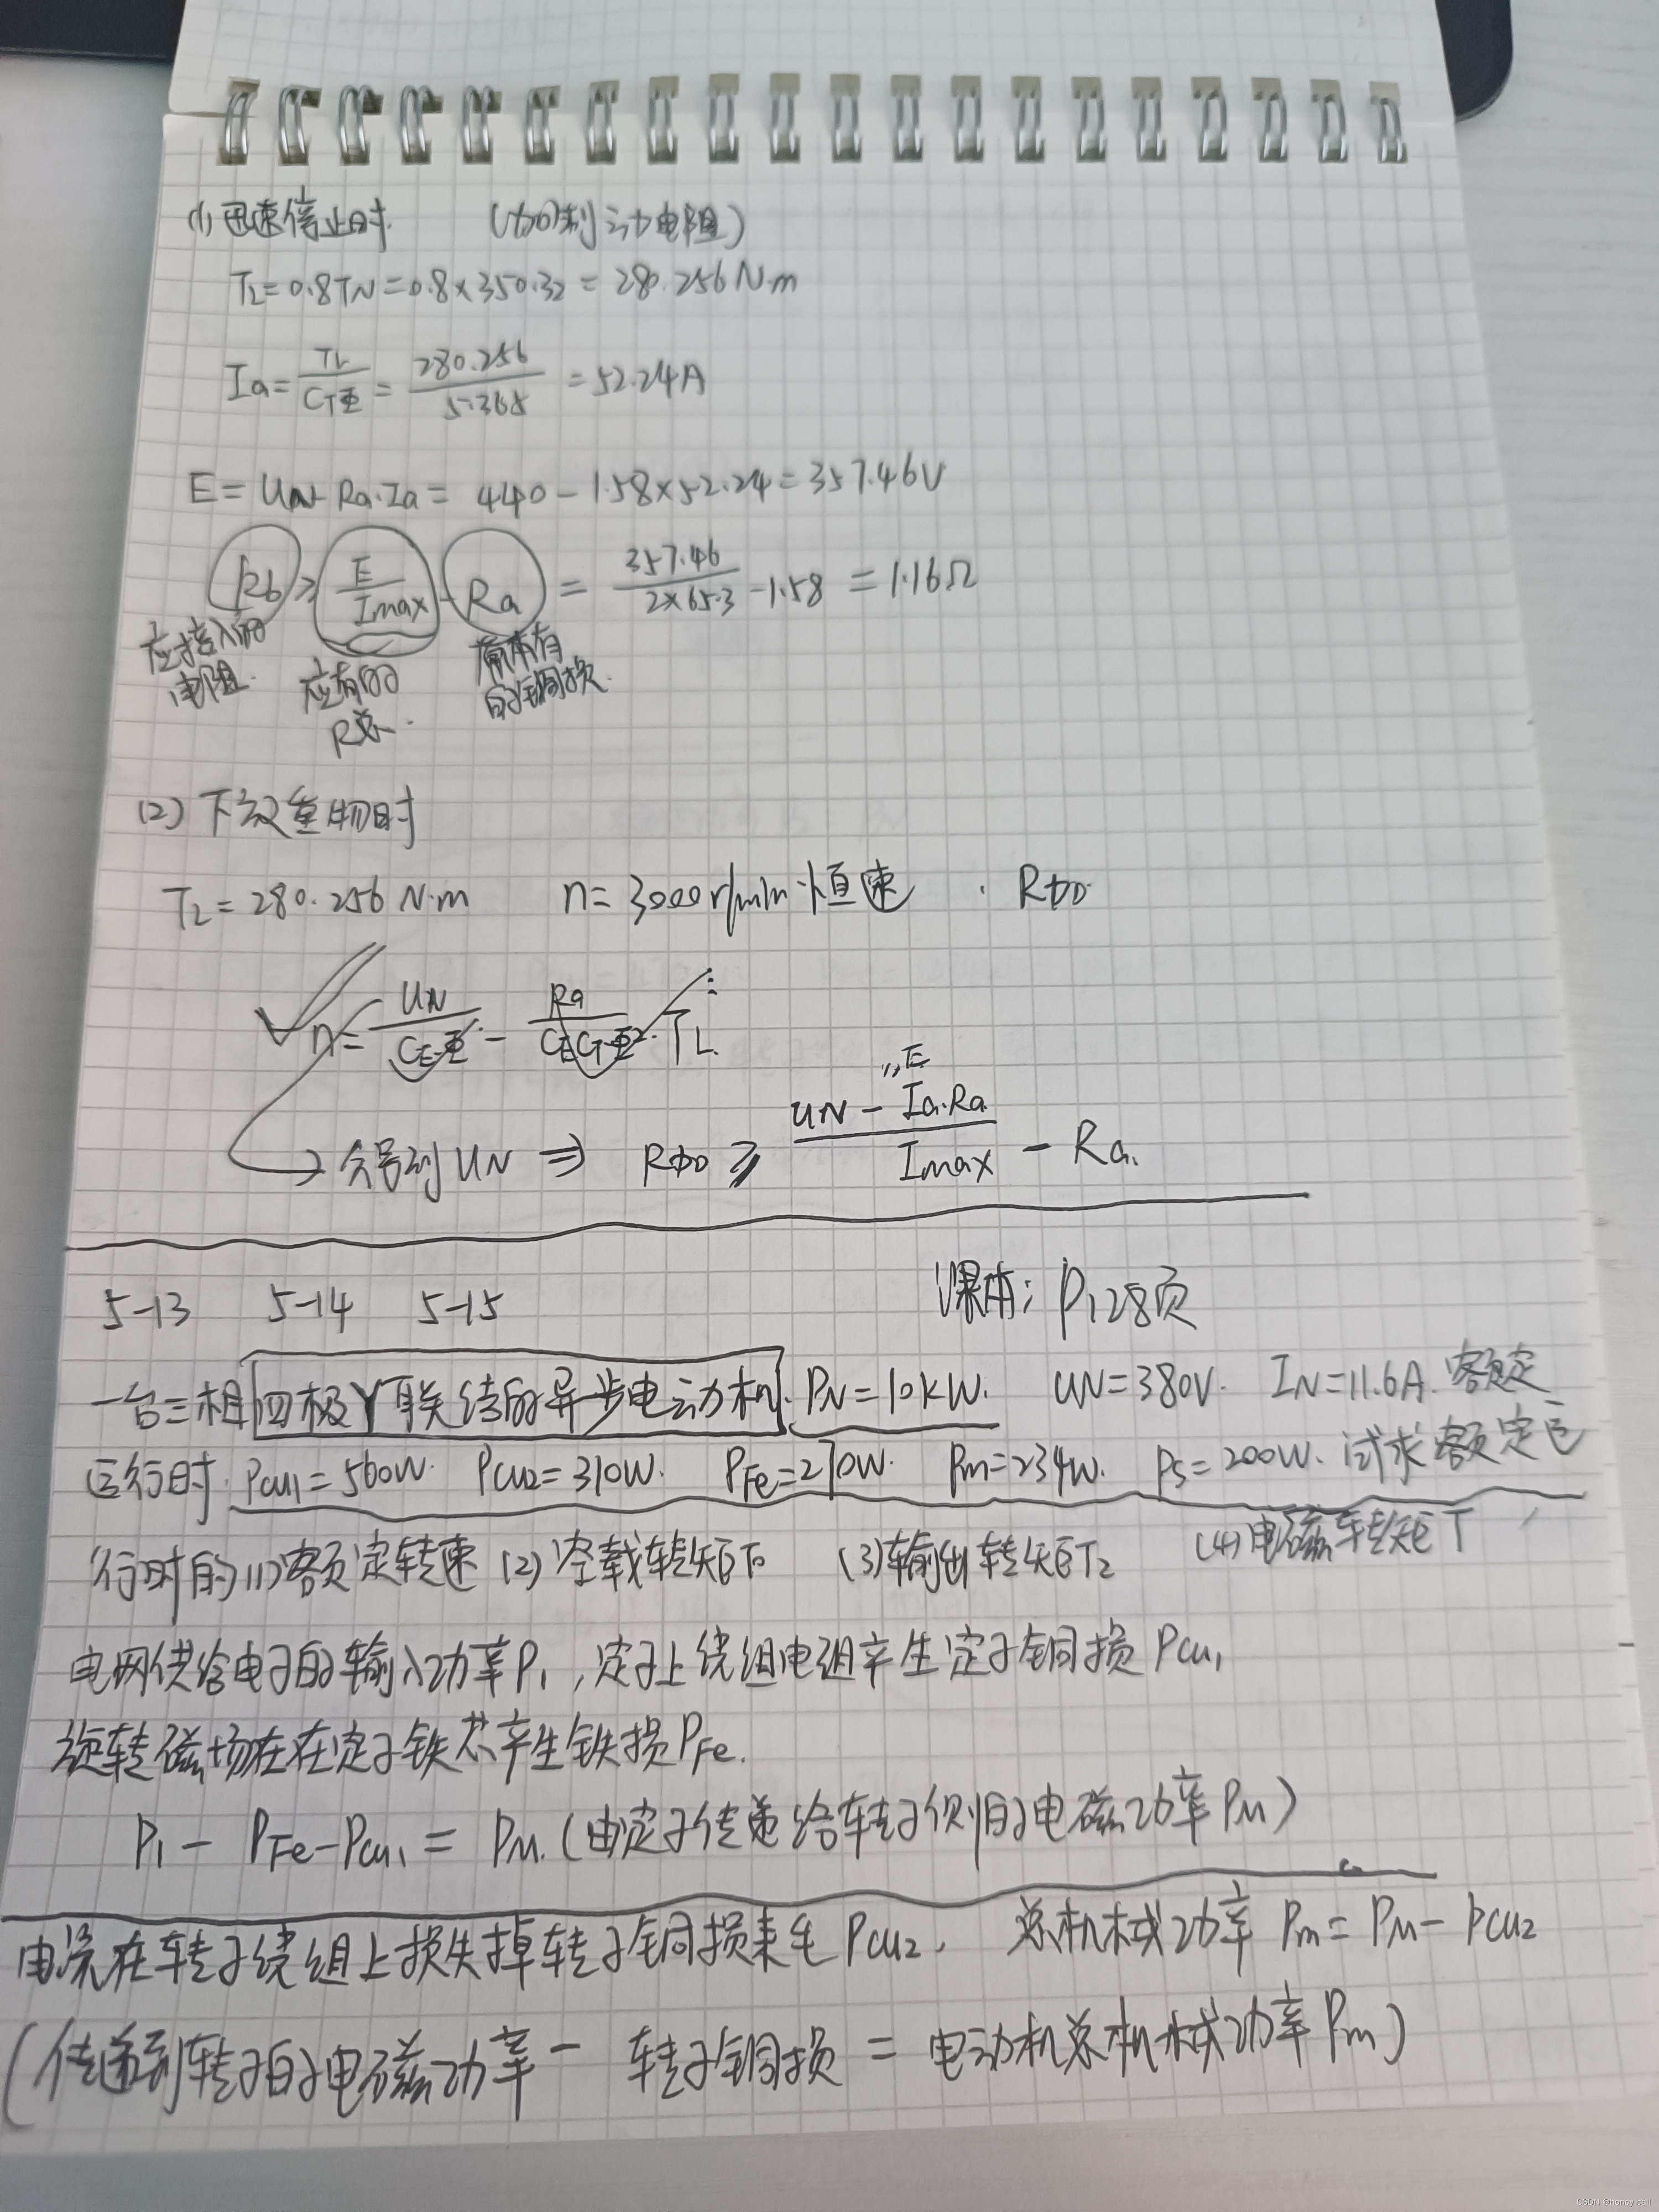 (1) 迅速停止时. (加制动电阻)
T2=0.8TN=0.8×350.32=280.256N·m
Ia=TL/CTΦ=280.256/5.365=52.24A
E=UN-Ra·Ia=440-1.58×52.24=357.46V
Rb≥E/Imax-Ra=357.46/2×65.3-1.58=1.16Ω
应接入的电阻. 应有的R总. 原本有的铜损.
(2) 下放重物时
T2=280.256N·m n=3000r/min恒速 Rbo
n=UN/CEΦ-Ra/CECTΦ²·TL
会导到UN⇒ Rbo≥UN-Ia·Ra/Imax-Ra.
E
5-13 5-14 5-15 课本: P128页
一台三相四极Y联结的异步电动机. PN=10kW. UN=380V. IN=11.6A. 额定
运行时. Pcu1=560W. Pcu2=310W. PFe=270W. Pm=234W. Ps=200W. 试求额定运
行时的(1)额定转速(2)空载转矩T0 (3)输出转矩T2 (4)电磁转矩T
电网供给电子的输入功率P1,定子上绕组电阻产生定子铜损Pcu1
旋转磁场在在定子铁芯产生铁损PFe.
P1-PFe-Pcu1=PM.(由定子传递给转子侧的电磁功率PM)
电流在转子绕组上损失掉转子铜损耗Pcu2. 总机械功率Pm=PM-Pcu2
(传递到转子的电磁功率-转子铜损=电动机总机械功率Pm)
CSDN @honey ball